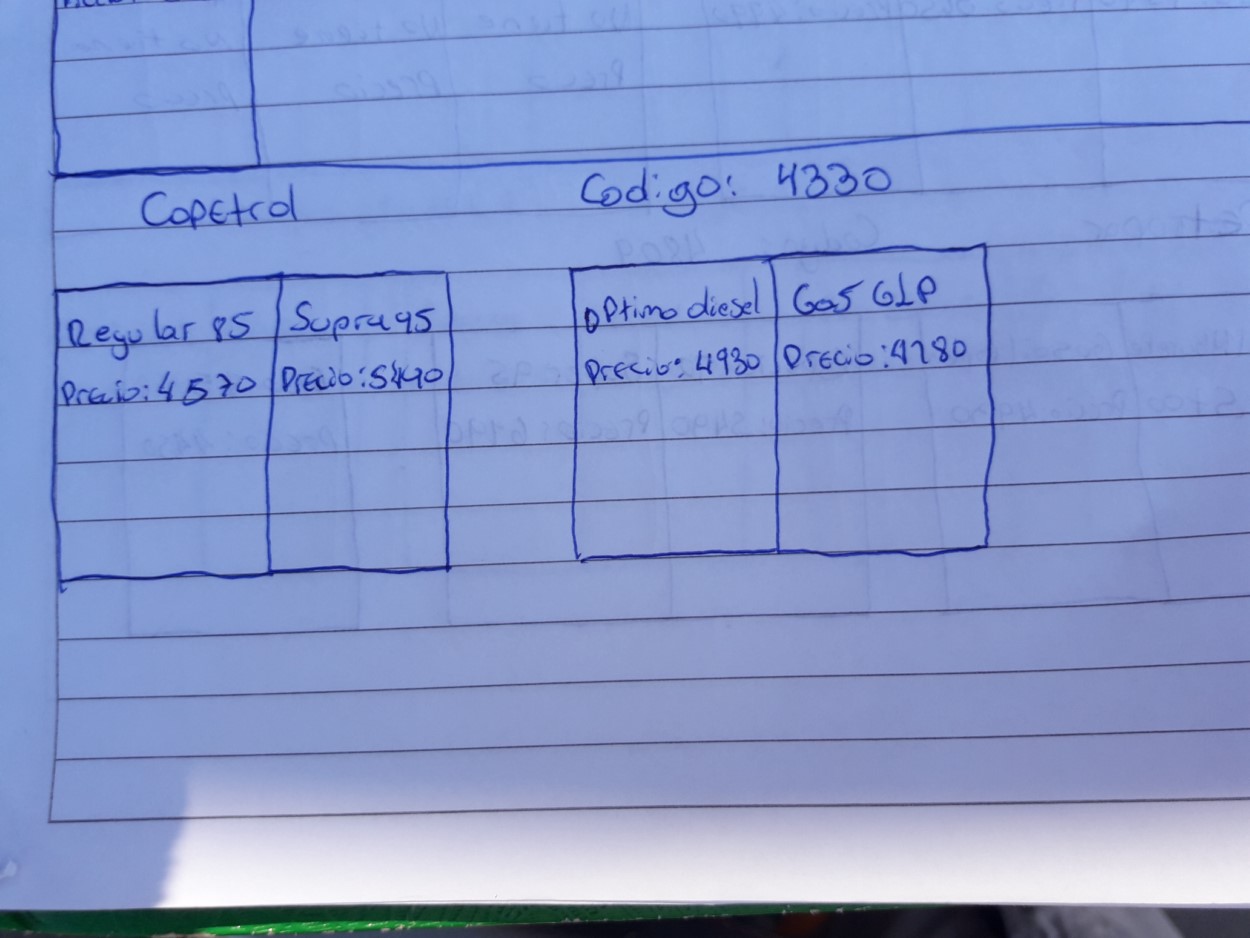 Copetrol
Codigo: 4330
Regular 85
Precio: 4570
Supra 95
Precio: 5490
Optimo diesel
Precio: 4930
Gas GLP
Precio: 4280